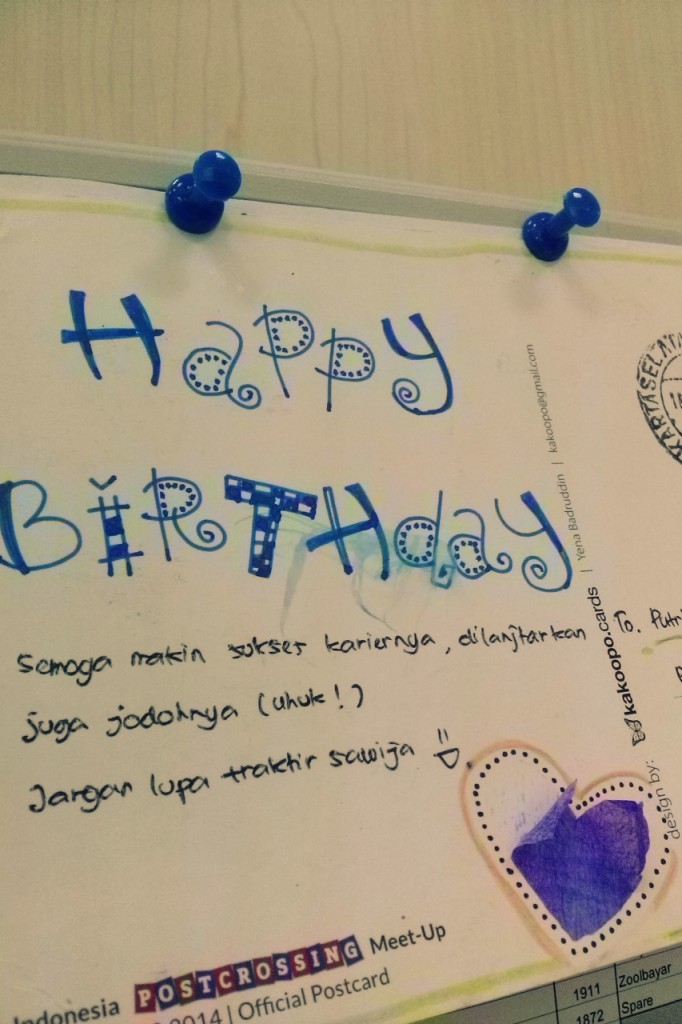 Happy
BiRTHday
Semoga makin sukses kariernya, dilanjtarkan
juga jodohnya (uhuk!)
Jangan lupa traktir sawija
To. Putri
design by: kakoopo.cards | Yena Badruddin | kakoopo@gmail.com
KARTASELATA
Indonesia POSTCROSSING Meet-Up
2014 | Official Postcard
1911 Zoolbayar
1872 Spare